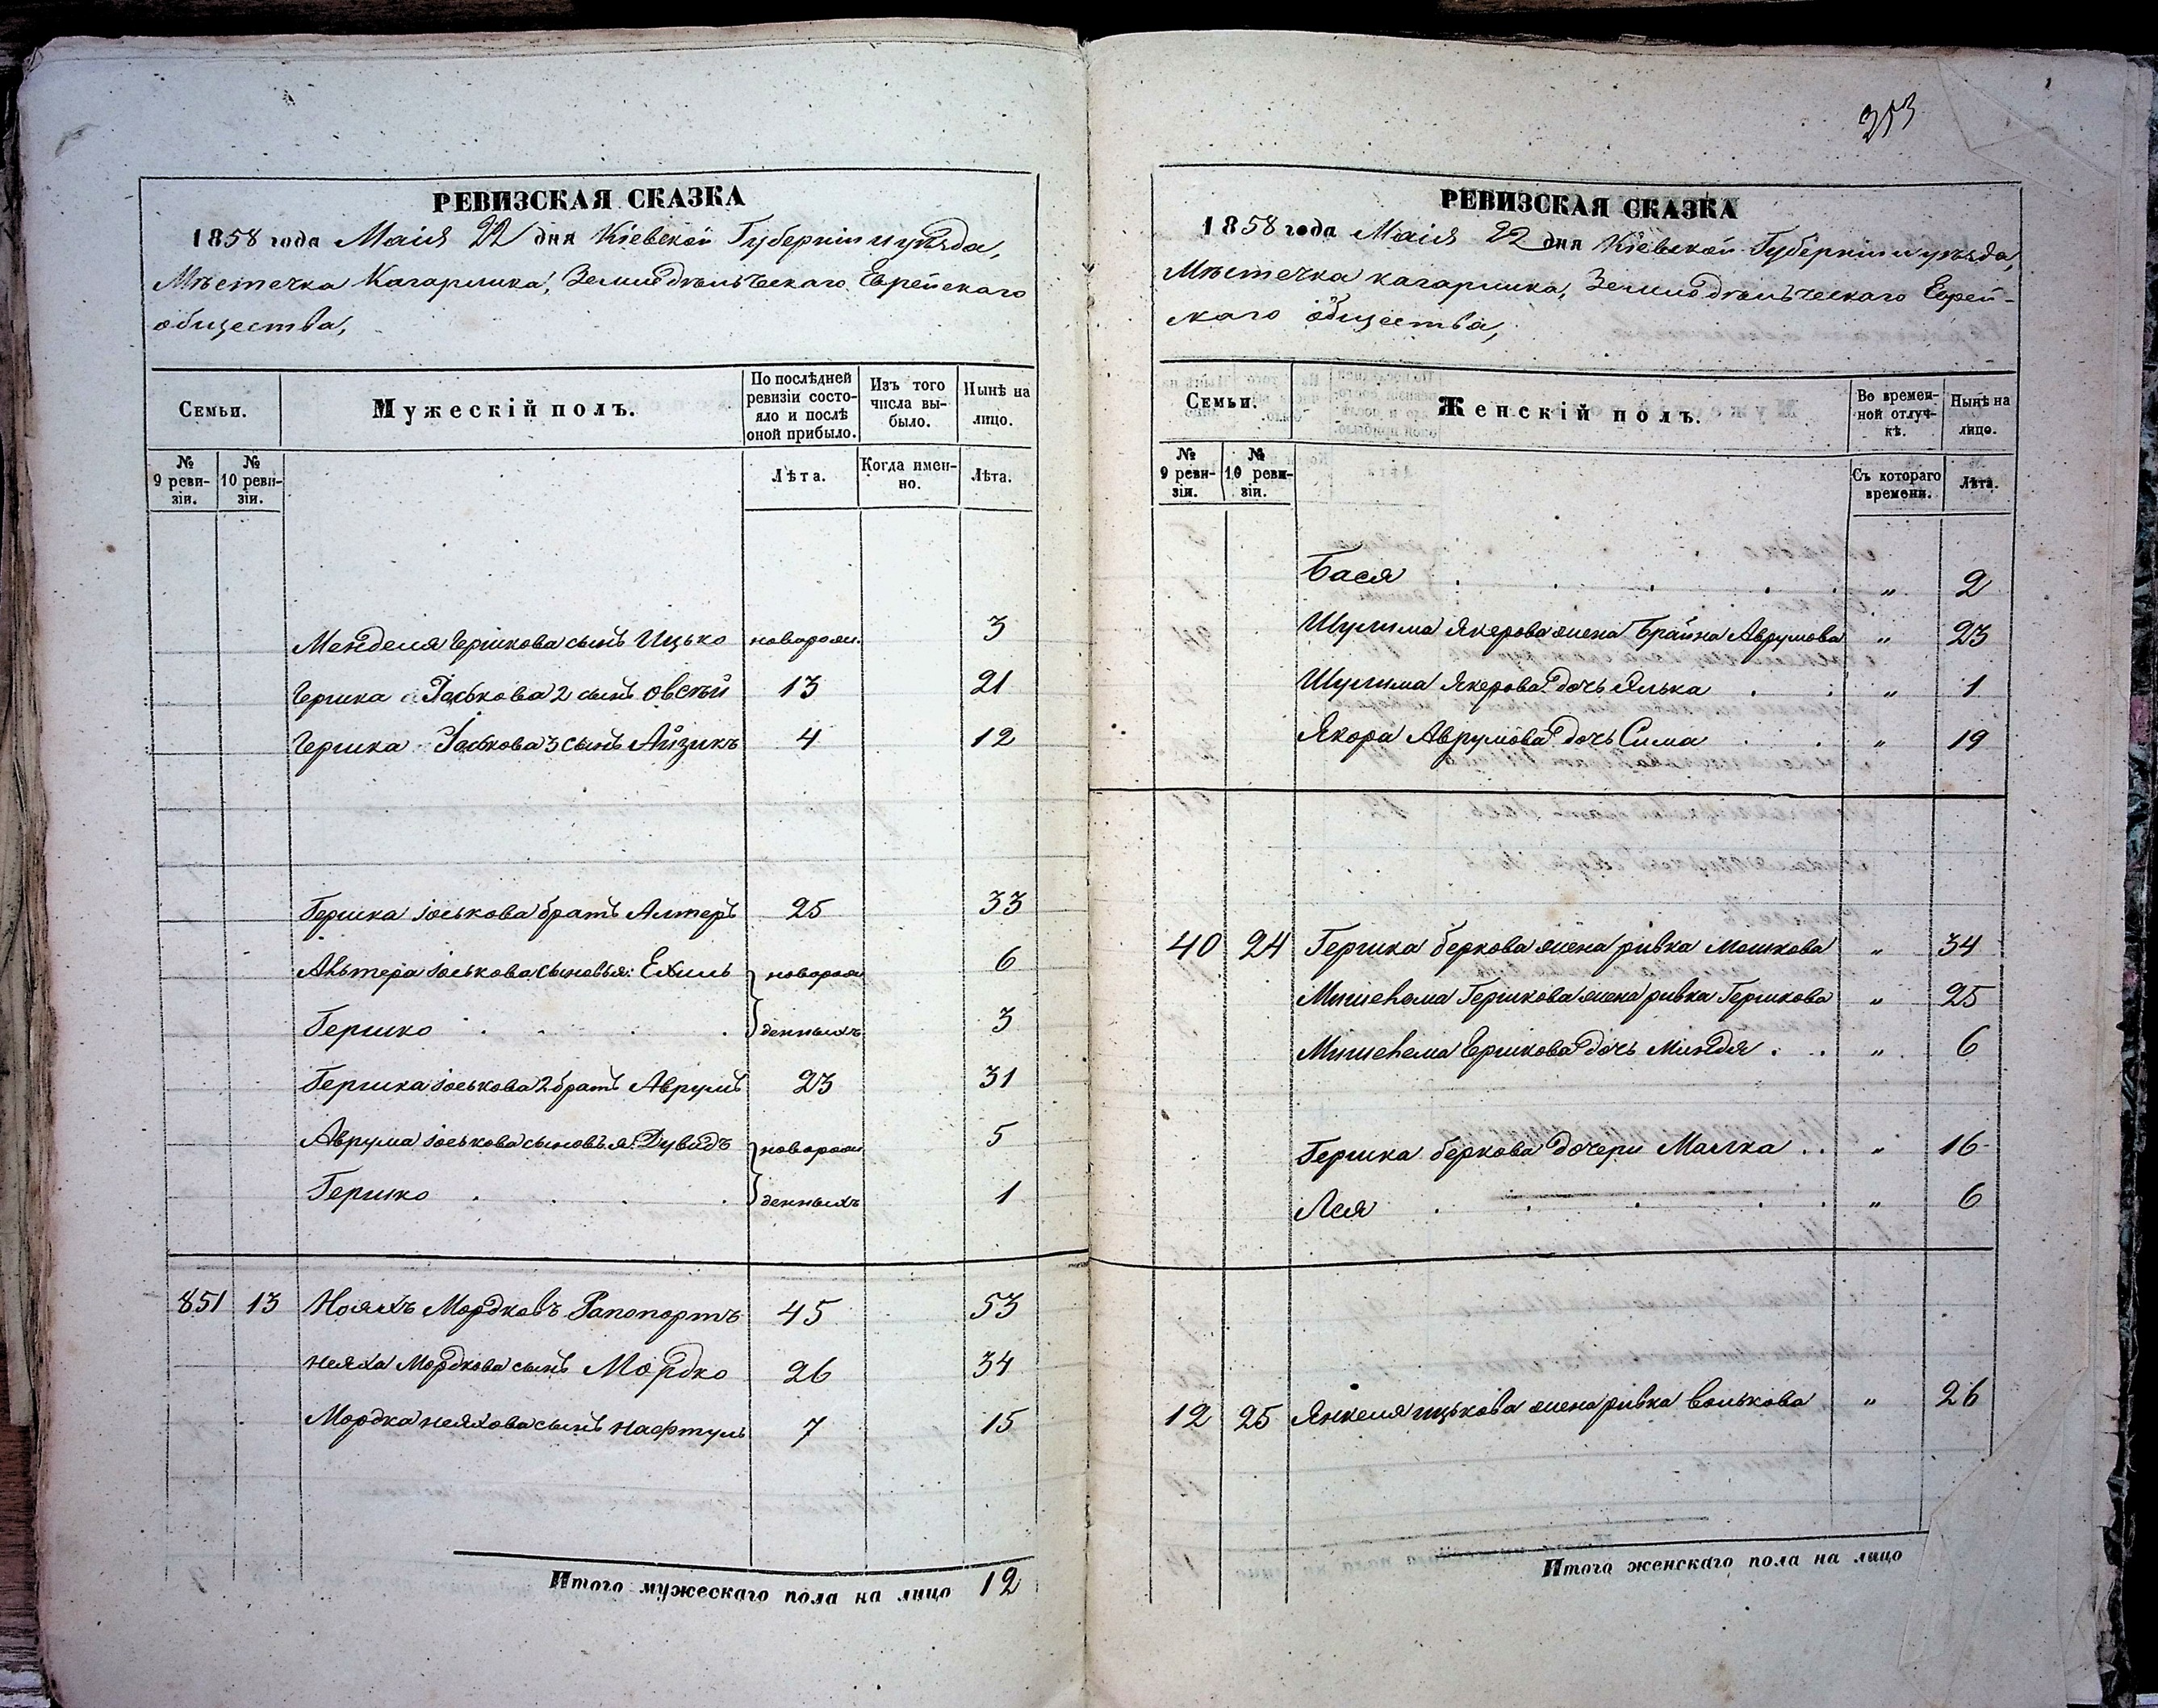 РЕВИЗСКАЯ СКАЗКА
1858 года Маія 22 дня Кіевской Губерніи и уѣзда,
Мѣстечка Кагарлика, Земледѣльческаго Еврейскаго
общества,
Семьи.
Мужескій полъ.
По послѣдней ревизіи состояло и послѣ оной прибыло.
Изъ того числа выбыло.
Нынѣ на лицо.
№ 9 ревизіи.
№ 10 ревизіи.
Лѣта.
Когда именно.
Лѣта.
Менделя Гершкова сынъ Ицько новорож. 3
Гершка Іоськова 2 сынъ Овсѣй 13 21
Гершка Іоськова 3 сынъ Айзикъ 4 12
Гершка Іоськова братъ Алтеръ 25 33
Альтера Іоськова сыновья: Ехиль новорож 6
Гершко денныхъ 3
Гершка Іоськова 2 братъ Аврумъ 23 31
Аврума Іоськова сыновья: Дувидъ новорож 5
Гершко денныхъ 1
851 13 Нояхъ Мордковъ Рапопортъ 45 53
Нояха Мордкова сынъ Мордко 26 34
Мордка Нояхова сынъ Нафтуль 7 15
Итого мужескаго пола на лицо 12
253
РЕВИЗСКАЯ СКАЗКА
1858 года Маія 22 дня Кіевской Губерніи и уѣзда,
Мѣстечка Кагарлика, Земледѣльческаго Еврей-
скаго общества,
Семьи.
Женскій полъ.
Во временной отлучкѣ.
Нынѣ на лицо.
№ 9 ревизіи.
№ 10 ревизіи.
Съ котораго времени.
Лѣта.
Бася . . . . . „ 2
Шулима Якерова жена Брайна Аврумова „ 23
Шулима Якерова дочь Элька . . „ 1
Якора Аврумова дочь Сима . . „ 19
40 24 Гершка Беркова жена Ривка Мошкова „ 34
Гершкова жена Ривка Гершкова „ 25
Гершкова дочь Миндля . . „ 6
Гершка Беркова дочери Малка . . „ 16
Лея . . . . . „ 6
12 25 Янкеля Ицькова жена Ривка Волькова „ 26
Итого женскаго пола на лицо